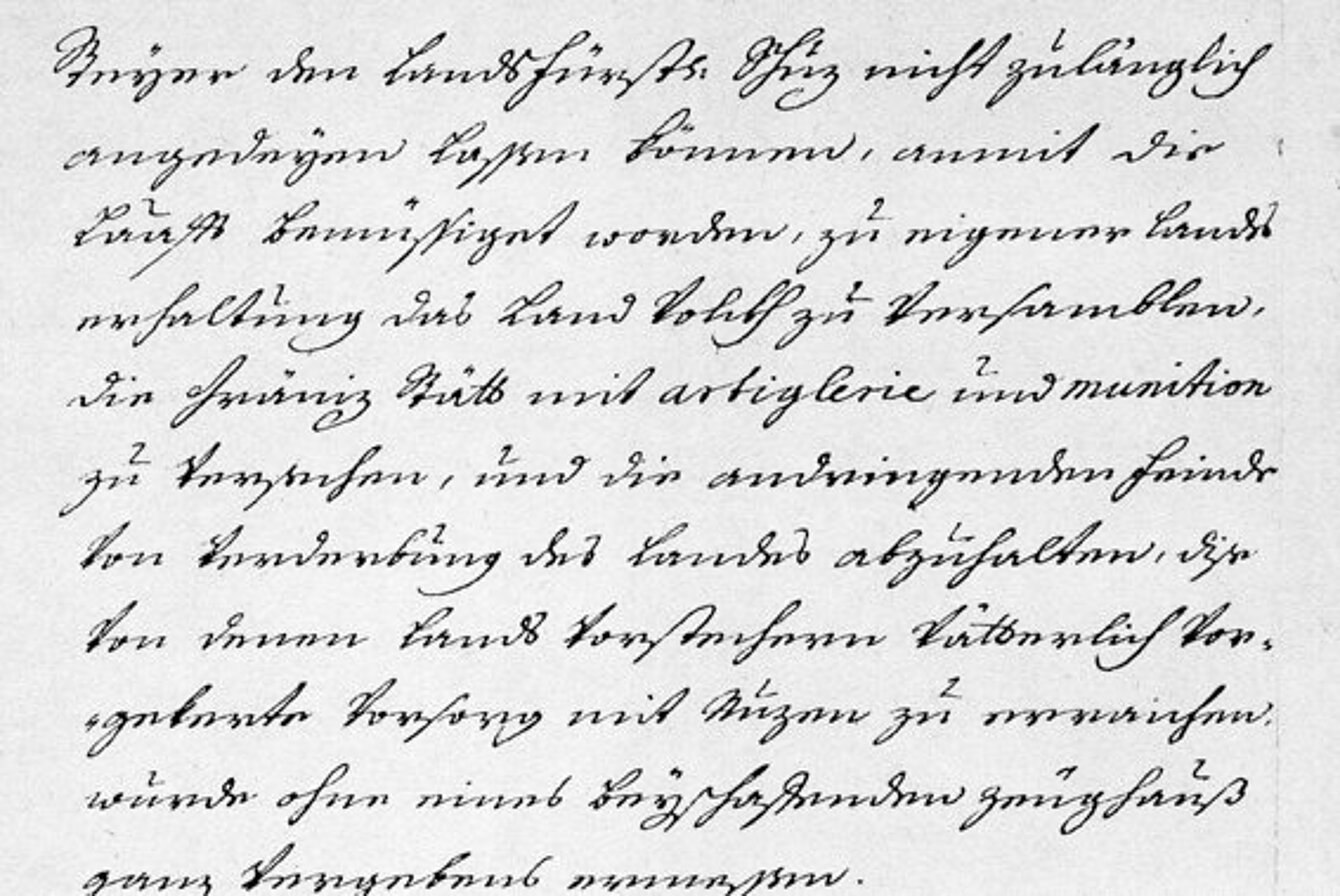 Steyer den Landsfürstl: Schuz nicht zulänglich
angedeyen lassen können, anmit die
bemüssiget worden, zu eigener Lands
erhaltung das Land Volckh zu Versamblen,
die Gräniz Stätt mit artiglerie und munition
zu Versechen, und die andringenden Feinde
Von Verderbung des Landes abzuhalten, dise
Von denen Lands Vorstechern Vätterlich Vor-
-gekerte Vorsorg mit Nuzen zu erraichen.
wurde ohne eines beyschaffenden zeüghauß
ganz Vergebens ermessen.